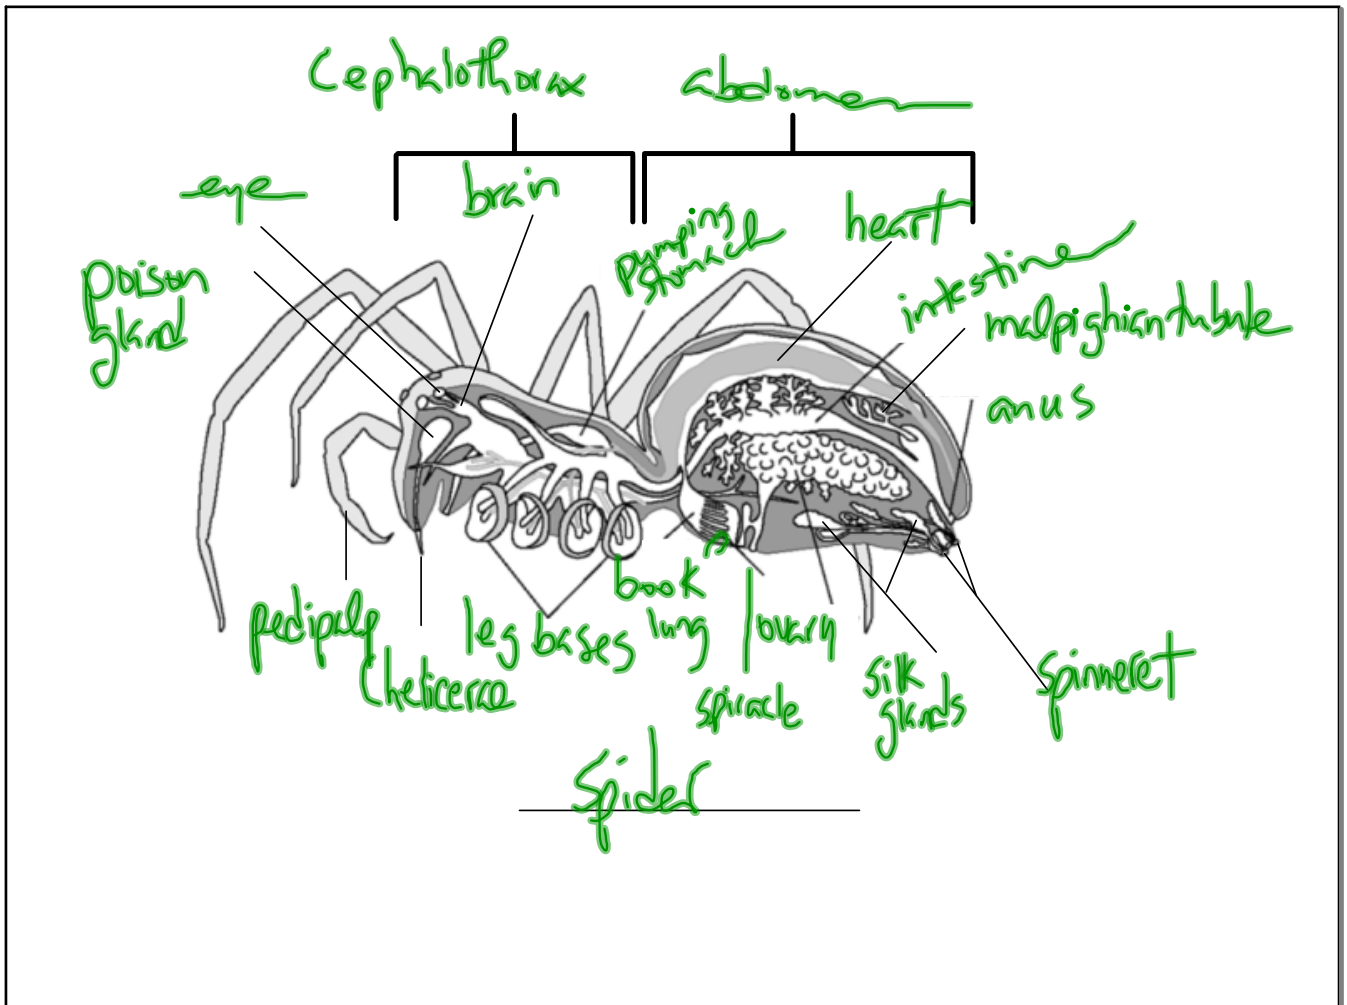 Cephalothorax
abdomen
eye
brain
pumping
stomach
heart
poison
gland
intestine
malpighian tubule
anus
pedipalp
Chelicerae
leg bases
book
lung
ovary
spiracle
silk
glands
spinneret
Spider